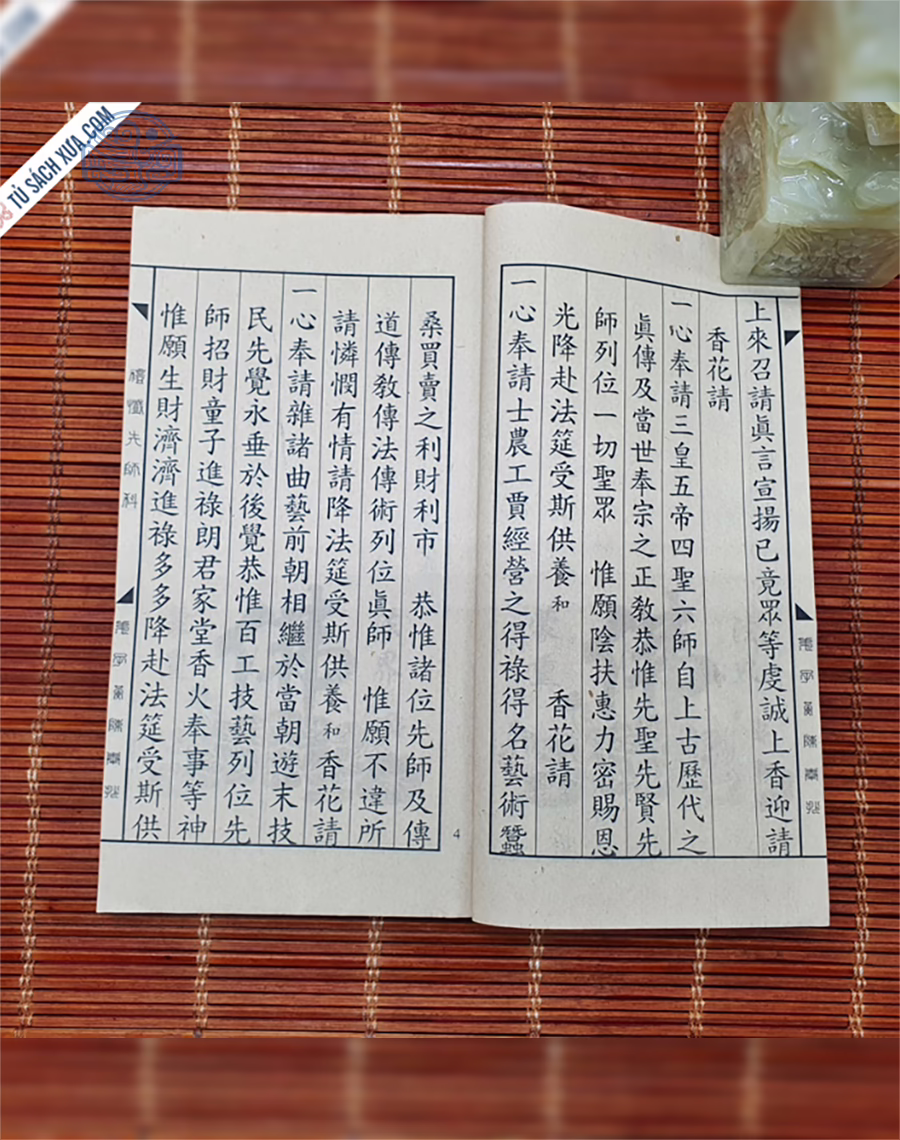 TỦ SÁCH XƯA.COM
上來召請眞言宣揚已竟眾等虔誠上香迎請
香花請
一心奉請三皇五帝四聖六師自上古歷代之
眞傳及當世奉宗之正教恭惟先聖先賢先
師列位一切聖眾 惟願陰扶惠力密賜恩
光降赴法筵受斯供養和 香花請
一心奉請士農工賈經營之得祿得名藝術蠶
桑買賣之利財利市 恭惟諸位先師及傳
道傳教傳法傳術列位眞師 惟願不違所
請憐憫有情請降法筵受斯供養和香花請
一心奉請雜諸曲藝前朝相繼於當朝遊末技
民先覺永垂於後覺恭惟百工技藝列位先
師招財童子進祿朗君家堂香火奉事等神
惟願生財濟濟進祿多多降赴法筵受斯供
先師科
4